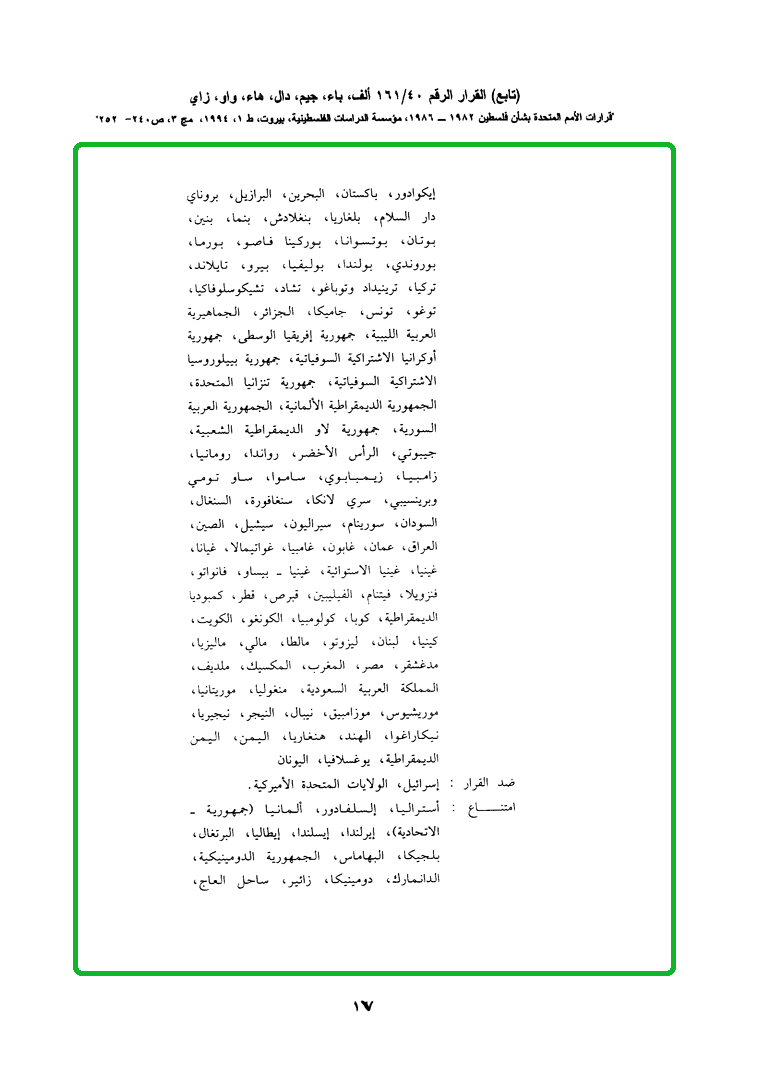 (تابع) القرار الرقم ١٦١/٤٠ ألف، باء، جيم، دال، هاء، واو، زاي
"قرارات الأمم المتحدة بشأن فلسطين ١٩٨٢ ــ ١٩٨٦، مؤسسة الدراسات الفلسطينية، بيروت، ط ١، ١٩٩٤، مج ٣، ص٢٤٠- ٢٥٢"
إيكوادور، باكستان، البحرين، البرازيل، بروناي
دار السلام، بلغاريا، بنغلادش، بنما، بنين،
بوتان، بوتسوانا، بوركينا فاصو، بورما،
بوروندي، بولندا، بوليفيا، بيرو، تايلاند،
تركيا، ترينيداد وتوباغو، تشاد، تشيكوسلوفاكيا،
توغو، تونس، جاميكا، الجزائر، الجماهيرية
العربية الليبية، جمهورية إفريقيا الوسطى، جمهورية
أوكرانيا الاشتراكية السوفياتية، جمهورية بييلوروسيا
الاشتراكية السوفياتية، جمهورية تنزانيا المتحدة،
الجمهورية الديمقراطية الألمانية، الجمهورية العربية
السورية، جمهورية لاو الديمقراطية الشعبية،
جيبوتي، الرأس الأخضر، رواندا، رومانيا،
زامبيا، زيمبابوي، ساموا، ساو تومي
وبرينسيبي، سري لانكا، سنغافورة، السنغال،
السودان، سورينام، سيراليون، سيشيل، الصين،
العراق، عمان، غابون، غامبيا، غواتيمالا، غيانا،
غينيا، غينيا الاستوائية، غينيا ــ بيساو، فانواتو،
فنزويلا، فيتنام، الفيليبين، قبرص، قطر، كمبوديا
الديمقراطية، كوبا، كولومبيا، الكونغو، الكويت،
كينيا، لبنان، ليزوتو، مالطا، مالي، ماليزيا،
مدغشقر، مصر، المغرب، المكسيك، ملديف،
المملكة العربية السعودية، منغوليا، موريتانيا،
موريشيوس، موزامبيق، نيبال، النيجر، نيجيريا،
نيكاراغوا، الهند، هنغاريا، اليمن، اليمن
الديمقراطية، يوغسلافيا، اليونان
ضد القرار : إسرائيل، الولايات المتحدة الأميركية.
امتنـــــاع : أستراليا، إلسلفادور، ألمانيا (جمهورية ــ
الاتحادية)، إيرلندا، إيسلندا، إيطاليا، البرتغال،
بلجيكا، البهاماس، الجمهورية الدومينيكية،
الدانمارك، دومينيكا، زائير، ساحل العاج،
١٦٧